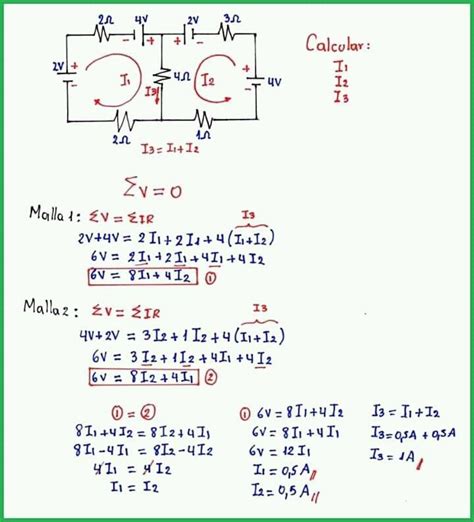 2Ω 4V 2V 3Ω
- + + -
2V + - I₁ 4Ω I₂ + - 4V
I₃
2Ω 1Ω
I₃ = I₁ + I₂
Calcular:
I₁
I₂
I₃
ΣV = 0
Malla 1: ΣV = ΣIR I₃
2V + 4V = 2I₁ + 2I₁ + 4(I₁ + I₂)
6V = 2I₁ + 2I₁ + 4I₁ + 4I₂
6V = 8I₁ + 4I₂ ①
Malla 2: ΣV = ΣIR I₃
4V + 2V = 3I₂ + 1I₂ + 4(I₁ + I₂)
6V = 3I₂ + 1I₂ + 4I₁ + 4I₂
6V = 8I₂ + 4I₁ ②
① = ②
8I₁ + 4I₂ = 8I₂ + 4I₁
8I₁ - 4I₁ = 8I₂ - 4I₂
4I₁ = 4I₂
I₁ = I₂
① 6V = 8I₁ + 4I₂
6V = 8I₁ + 4I₁
6V = 12I₁
I₁ = 0,5A
I₂ = 0,5A
I₃ = I₁ + I₂
I₃ = 0,5A + 0,5A
I₃ = 1A